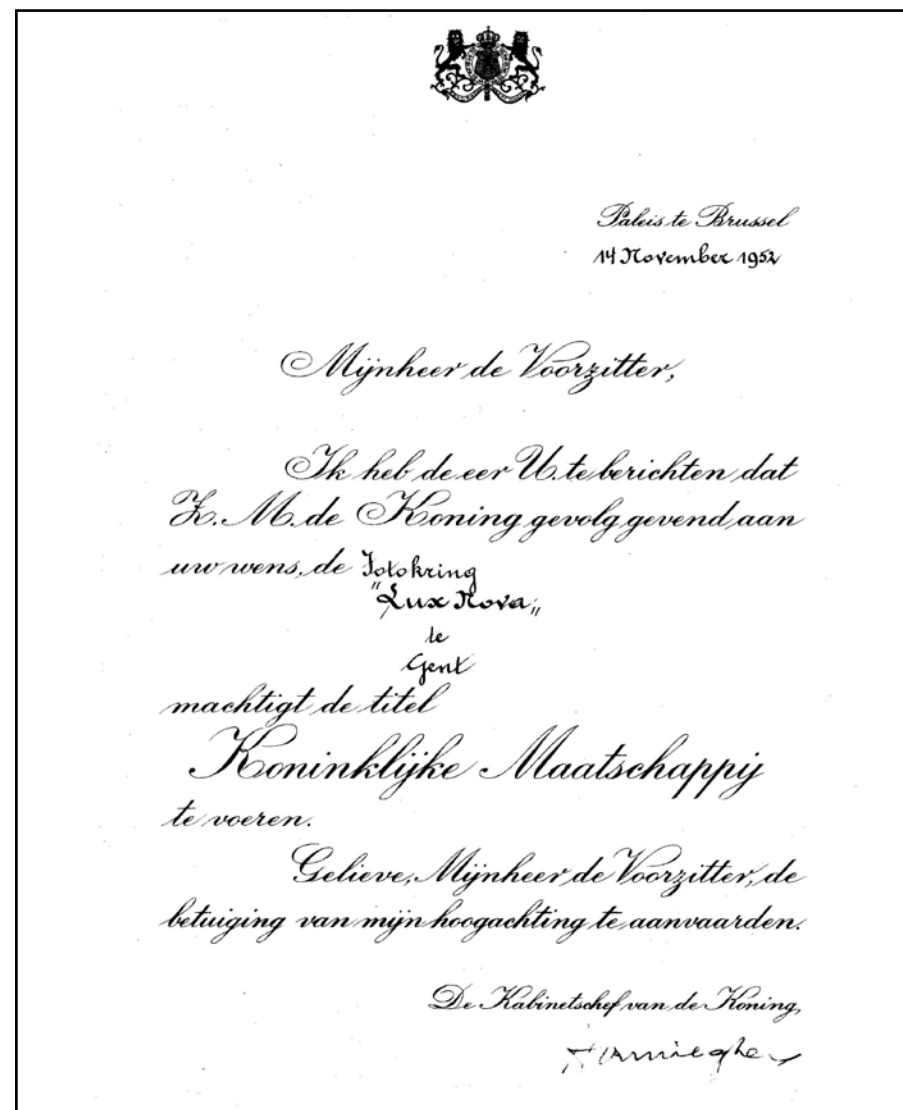 Paleis te Brussel
14 November 1952
Mijnheer de Voorzitter,
Ik heb de eer U te berichten dat
Z. M. de Koning gevolg gevend aan
uw wens, de Fotokring
"Lux Nova„
te
Gent
machtigt de titel
Koninklijke Maatschappij
te voeren.
Gelieve, Mijnheer de Voorzitter, de
betuiging van mijn hoogachting te aanvaarden.
De Kabinetschef van de Koning,